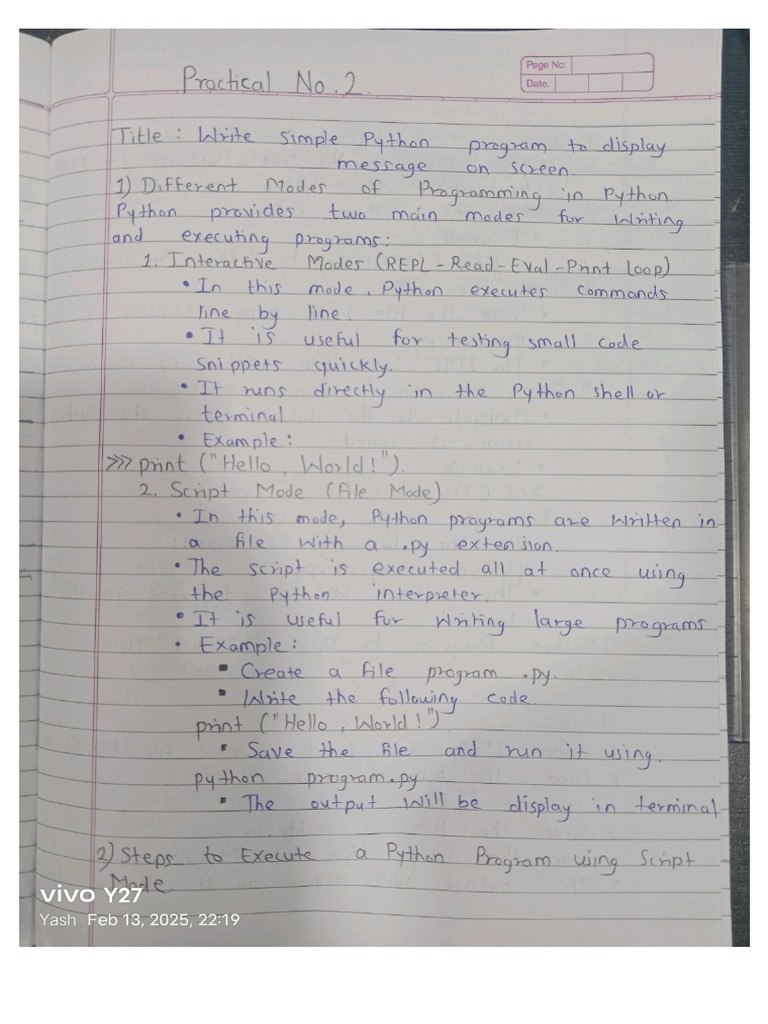 Practical No. 2.
Page No:
Date.
Title : Write simple Python program to display
message on screen.
1) Different Modes of Programming in Python
Python provides two main modes for writing
and executing programs:
1. Interactive Modes (REPL - Read - Eval - Print Loop)
• In this mode, Python executes commands
line by line.
• It is useful for testing small code
snippets quickly.
• It runs directly in the Python shell or
terminal
• Example :
>>> print ("Hello , World !").
2. Script Mode (File Mode)
• In this mode, Python programs are written in
a file with a .py extension.
• The script is executed all at once using
the Python interpreter.
• It is useful for writing large programs
• Example :
▪ Create a file program .py.
▪ Write the following code.
print ("Hello , World !")
▪ Save the file and run it using.
python program.py
▪ The output will be display in terminal
2) Steps to Execute a Python Program using Script
Mode.
vivo Y27
Yash Feb 13, 2025, 22:19